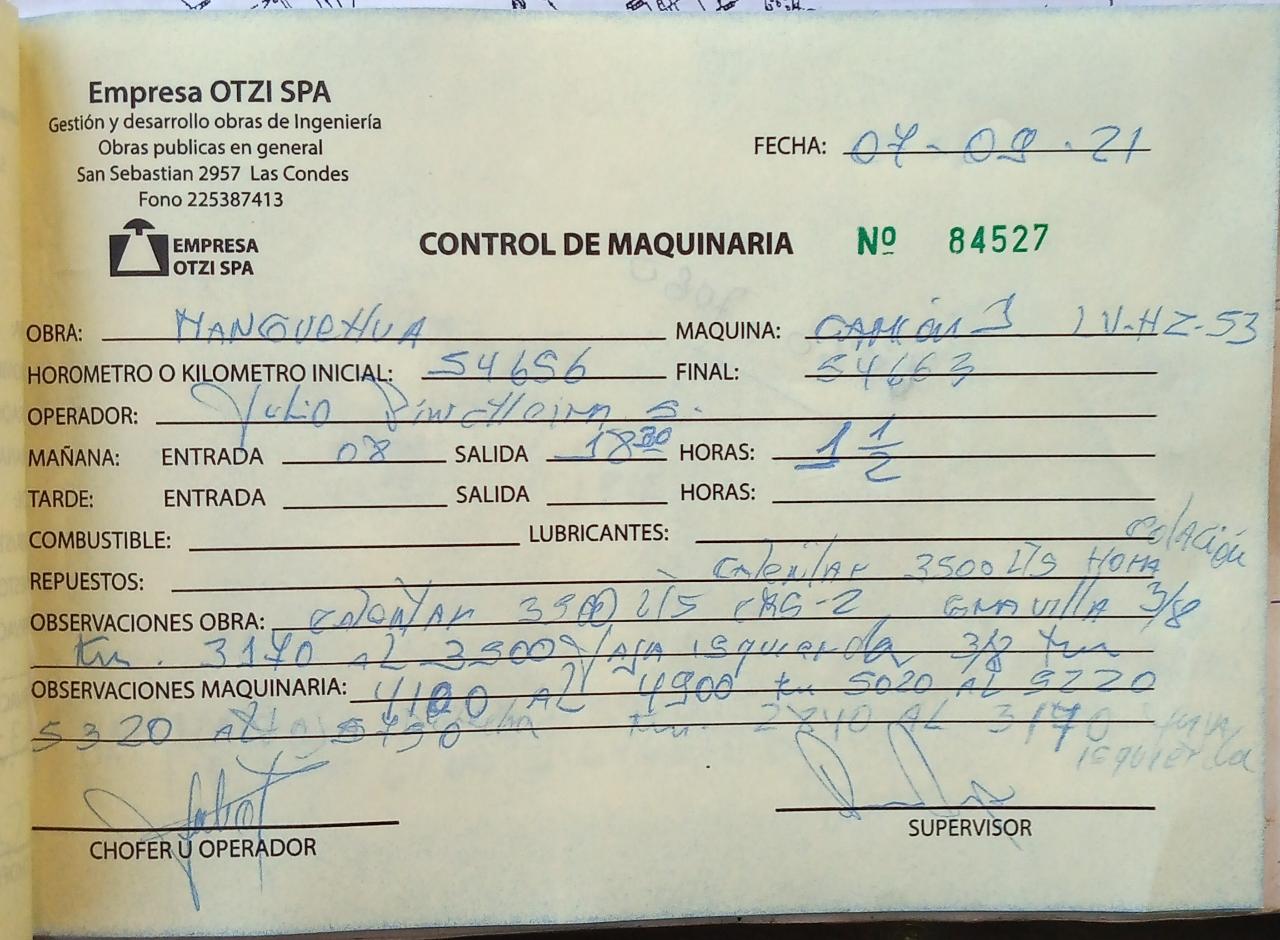 Empresa OTZI SPA
Gestión y desarrollo obras de Ingeniería
Obras publicas en general
San Sebastian 2957 Las Condes
Fono 225387413
EMPRESA
OTZI SPA
FECHA: 07-09-21
CONTROL DE MAQUINARIA Nº 84527
OBRA: MANQUEHUA MAQUINA: CAMión LV-HZ-53
HOROMETRO O KILOMETRO INICIAL: 54656 FINAL: 54663
OPERADOR: Julio S.
MAÑANA: ENTRADA 08 SALIDA 18 30 HORAS: 1 1/2
TARDE: ENTRADA SALIDA HORAS:
COMBUSTIBLE: LUBRICANTES: colación
REPUESTOS: CAlentAR 3500 LTS HORA
OBSERVACIONES OBRA: CAlentAR 3500 LTS CRS-2 GRAVillA 3/8
km. 3170 AL 3500 FAJA isquierda 3/8 km
OBSERVACIONES MAQUINARIA: 4100 AL 4900 km 5020 AL 5220
5320 AL km. 2840 AL 3170 FAJA
isquierda
CHOFER U OPERADOR
SUPERVISOR